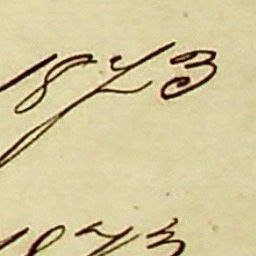 1873
1873